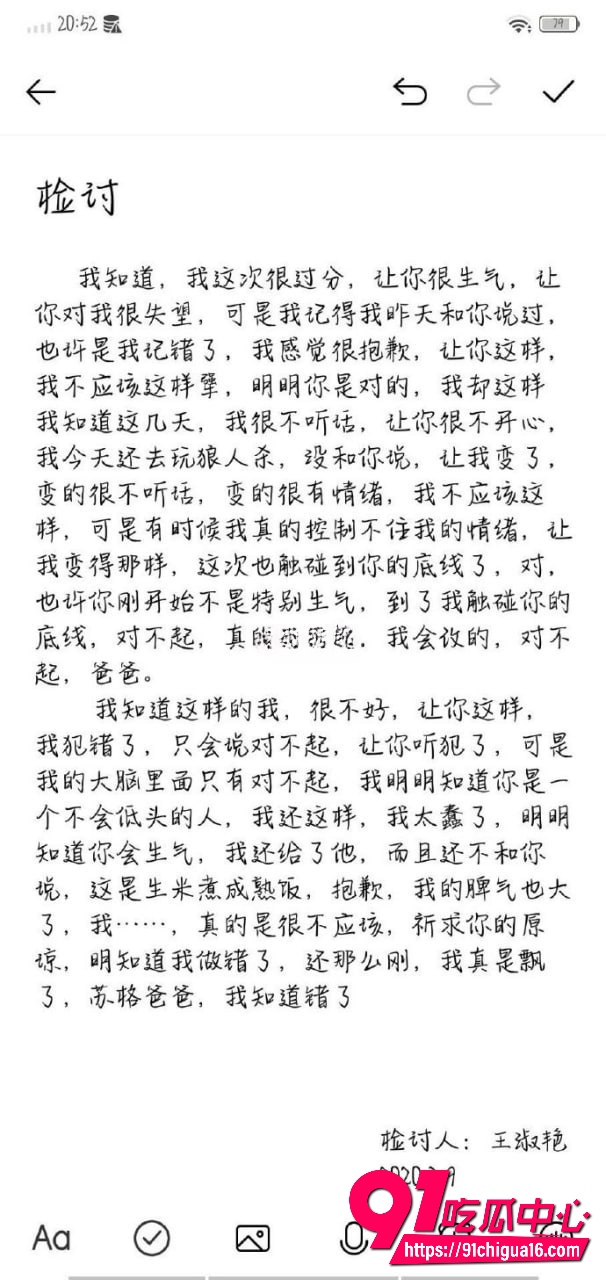 20:52
79
检讨
我知道，我这次很过分，让你很生气，让
你对我很失望，可是我记得我昨天和你说过，
也许是我记错了，我感觉很抱歉，让你这样，
我不应该这样犟，明明你是对的，我却这样
我知道这几天，我很不听话，让你很不开心，
我今天还去玩狼人杀，没和你说，让我变了，
变的很不听话，变的很有情绪，我不应该这
样，可是有时候我真的控制不住我的情绪，让
我变得那样，这次也触碰到你的底线了，对，
也许你刚开始不是特别生气，到了我触碰你的
底线，对不起，真的，我会改的，对不
起，爸爸。
我知道这样的我，很不好，让你这样，
我犯错了，只会说对不起，让你听犯了，可是
我的大脑里面只有对不起，我明明知道你是一
个不会低头的人，我还这样，我太蠢了，明明
知道你会生气，我还给了他，而且还不和你
说，这是生米煮成熟饭，抱歉，我的脾气也大
了，我……，真的是很不应该，祈求你的原
谅，明知道我做错了，还那么刚，我真是飘
了，苏格爸爸，我知道错了
检讨人：王淑艳
Aa
91吃瓜中心
https://91chigua16.com/